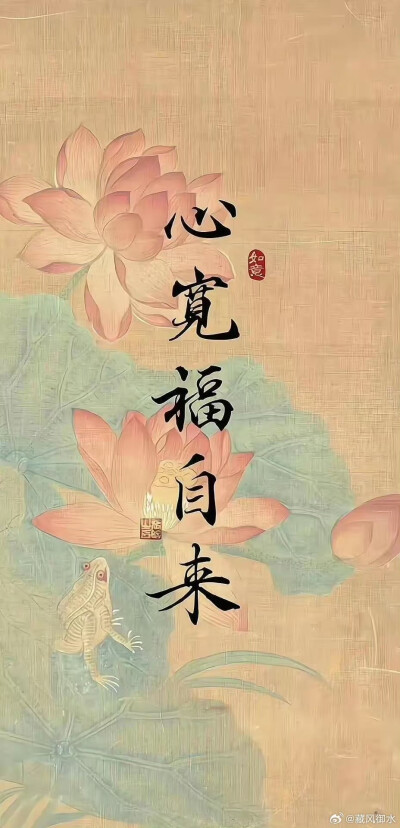 心寬福自来
如意
@藏风御水